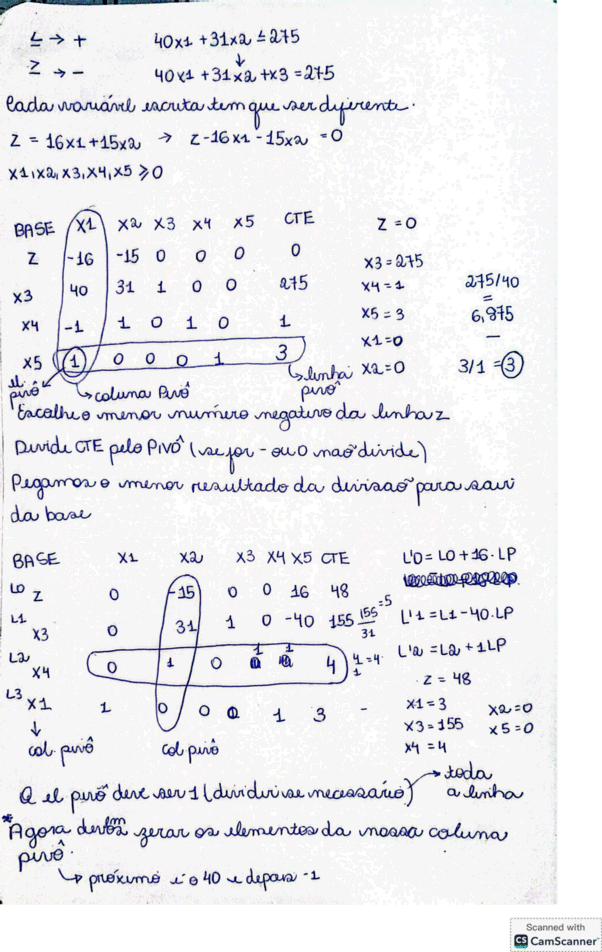 ≤ → + 40x1 + 31x2 ≤ 275
≥ → - 40x1 + 31x2 + x3 = 275
Cada variável escrita tem que ser diferente.
Z = 16x1 + 15x2 → Z - 16x1 - 15x2 = 0
x1, x2, x3, x4, x5 ≥ 0
BASE x1 x2 x3 x4 x5 CTE Z = 0
Z -16 -15 0 0 0 0
x3 40 31 1 0 0 275 x3 = 275 275/40
x4 -1 1 0 1 0 1 x4 = 1 =
x5 = 3 6,875
x1 = 0 —
x5 1 0 0 0 1 3 x2 = 0 3/1 = 3
el. pivô → coluna Pivô → linha pivô
Escolhe o menor numero negativo da linha z
Divide CTE pelo PIVÔ (se for - ou 0 não divide)
Pegamos o menor resultado da divisão para sair
da base
BASE x1 x2 x3 x4 x5 CTE L'0 = L0 + 16 · LP
L0 Z 0 -15 0 0 16 48
L1 x3 0 31 1 0 -40 155 155/31 = 5 L'1 = L1 - 40 · LP
L2 x4 0 1 0 1 1 4 4/1 = 4 L'2 = L2 + 1LP
Z = 48
L3 x1 1 0 0 0 1 3 - x1 = 3 x2 = 0
x3 = 155 x5 = 0
↓ x4 = 4
col. pivô col pivô
O el pivô deve ser 1 (dividir se necessário) → toda a linha
*Agora devemos zerar os elementos da nossa coluna
pivô.
↳ próximo é o 40 e depois -1
Scanned with
CS CamScanner